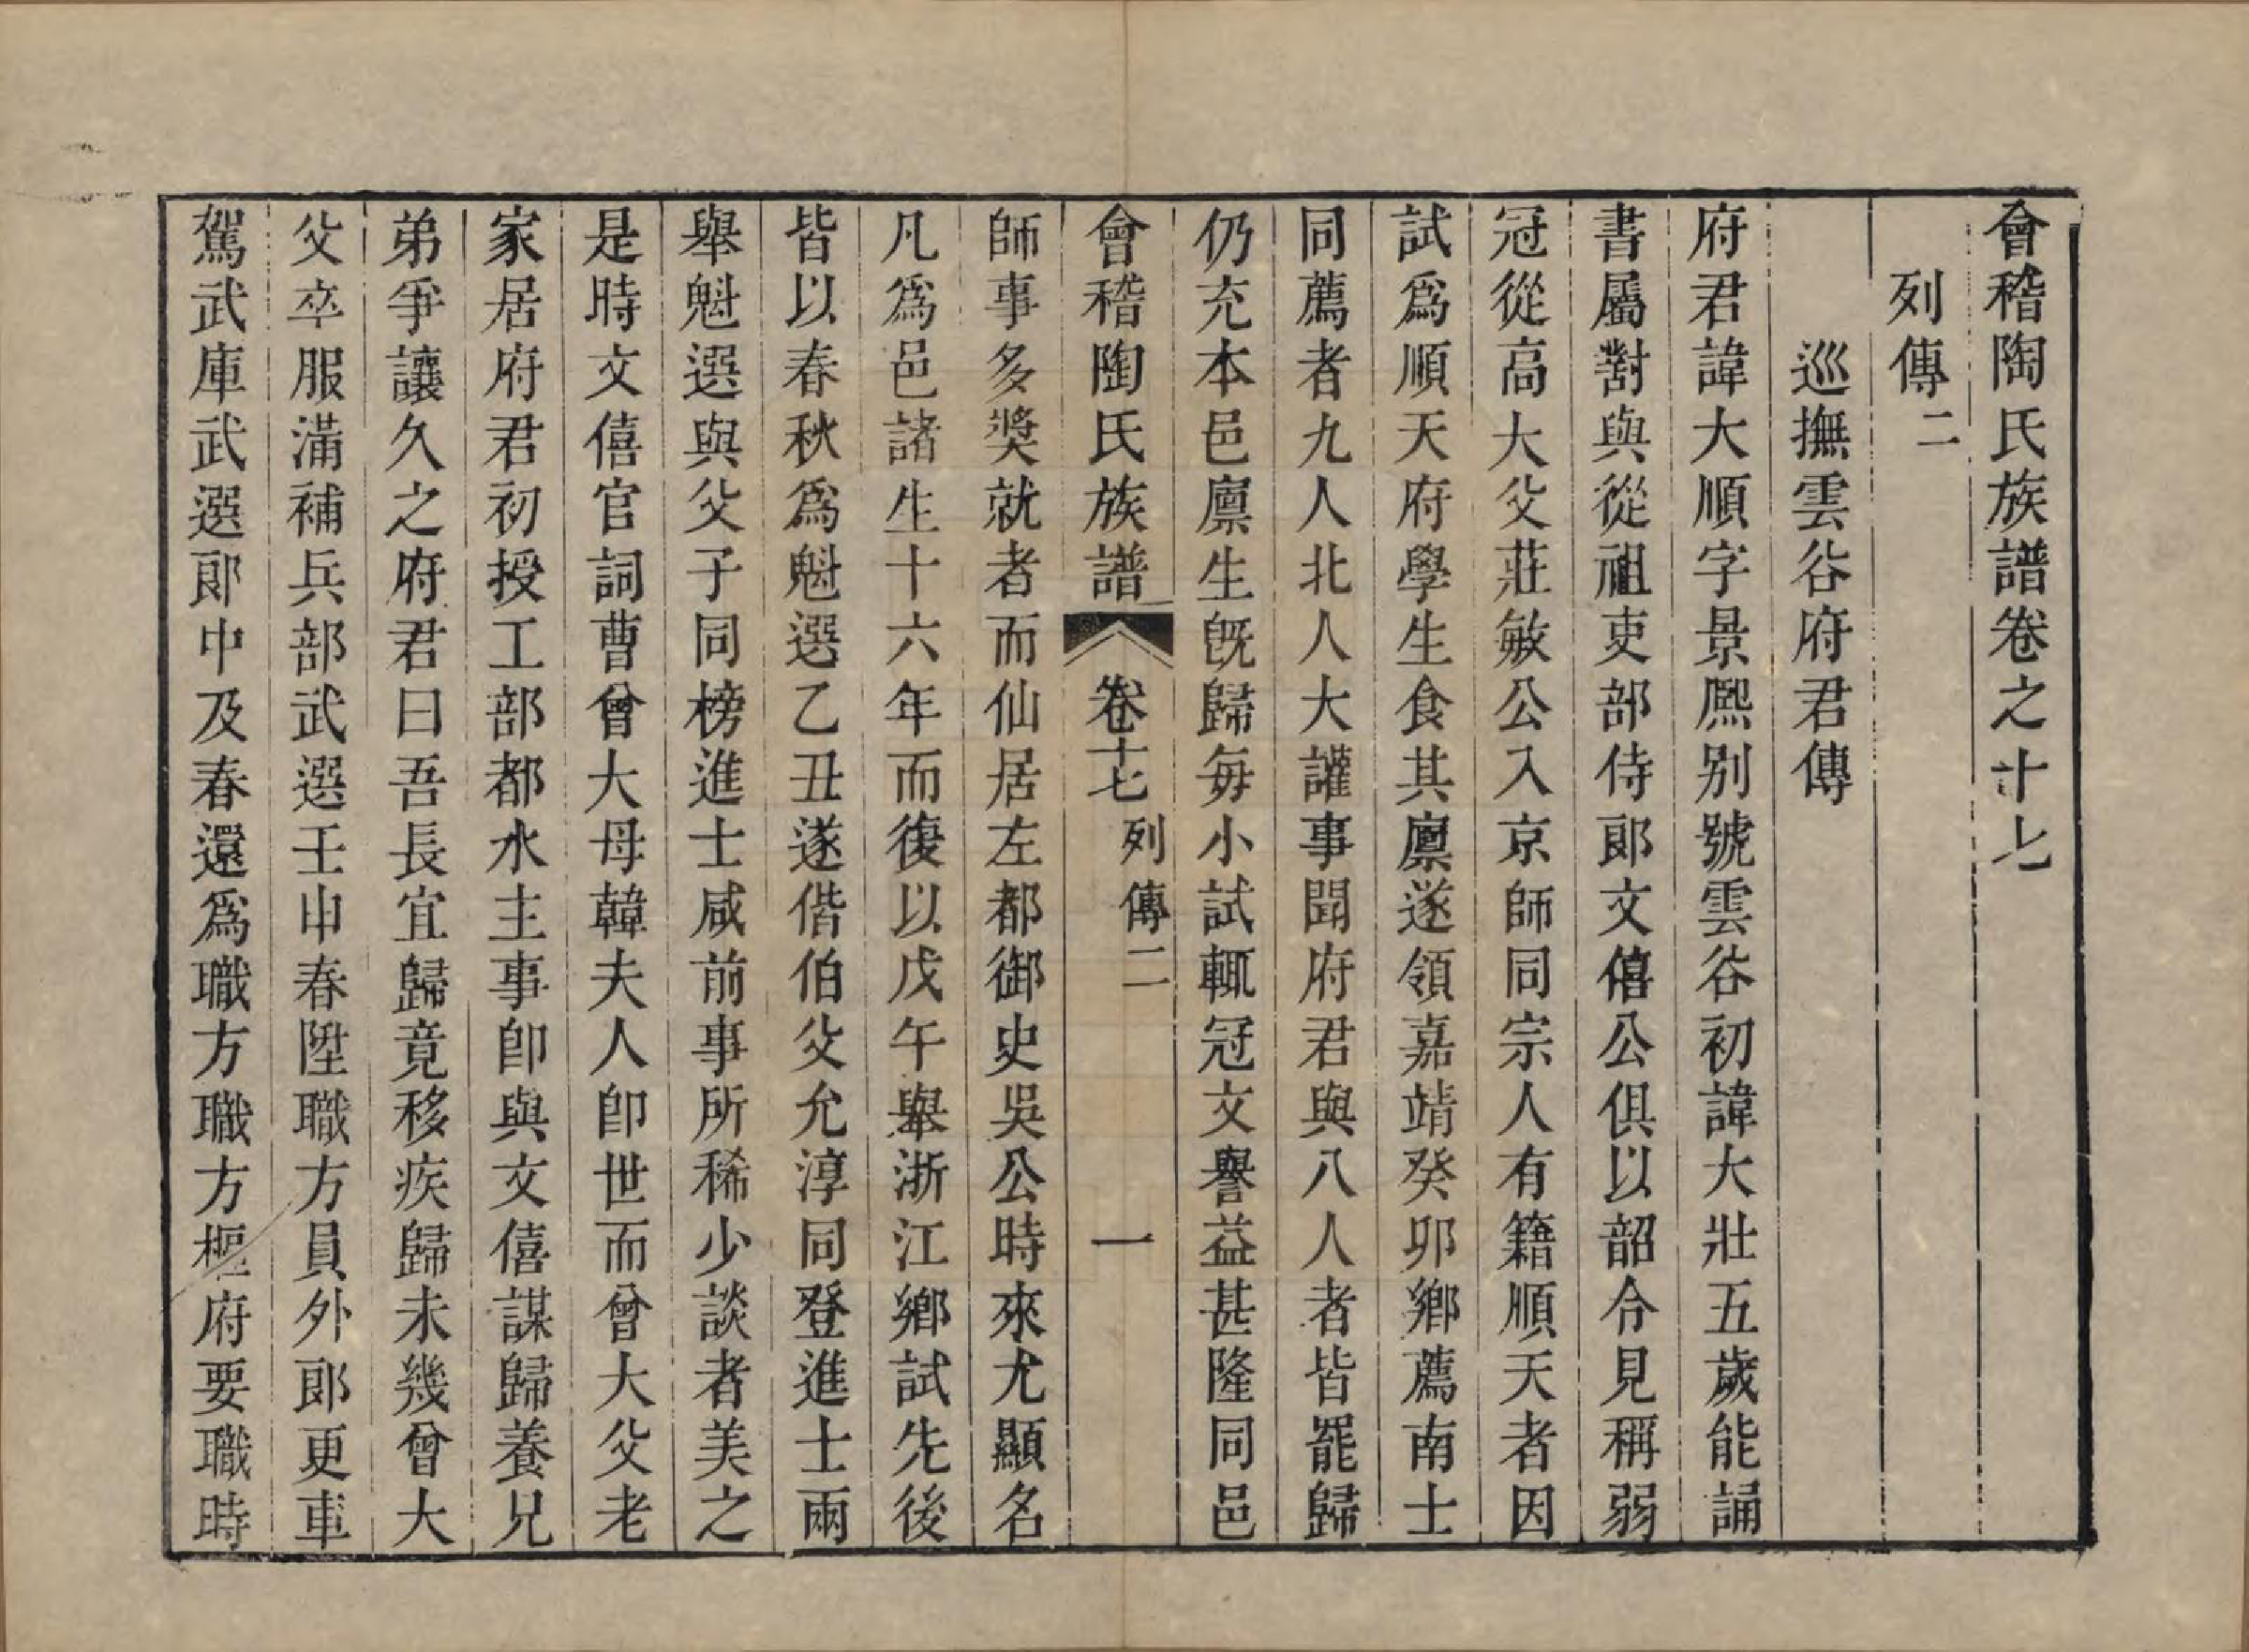 會稽陶氏族譜卷之十七
列傳二
巡撫雲谷府君傳
府君諱大順字景熈别號雲谷初諱大壯五歲能誦
書屬對與從祖吏部侍郎文僖公俱以韶令見稱弱
冠從高大父莊敏公入京師同宗人有籍順天者因
試爲順天府學生食其廩遂領嘉靖癸卯鄉薦南士
同薦者九人北人大讙事聞府君與八人者皆罷歸
仍充本邑廩生旣歸每小試輒冠文譽益甚隆同邑
會稽陶氏族譜 卷十七 列傳二 一
師事多獎就者而仙居左都御史吳公時來尤顯名
凡爲邑諸生十六年而復以戊午舉浙江鄉試先後
皆以春秋爲魁選乙丑遂偕伯父允淳同登進士兩
舉魁選與父子同榜進士咸前事所稀少談者美之
是時文僖官詞曹曾大母韓夫人卽世而曾大父老
家居府君初授工部都水主事卽與文僖謀歸養兄
弟爭讓久之府君曰吾長宜歸竟移疾歸未幾曾大
父卒服滿補兵部武選壬申春陞職方員外郎更車
駕武庫武選郎中及春還爲職方職方樞府要職時